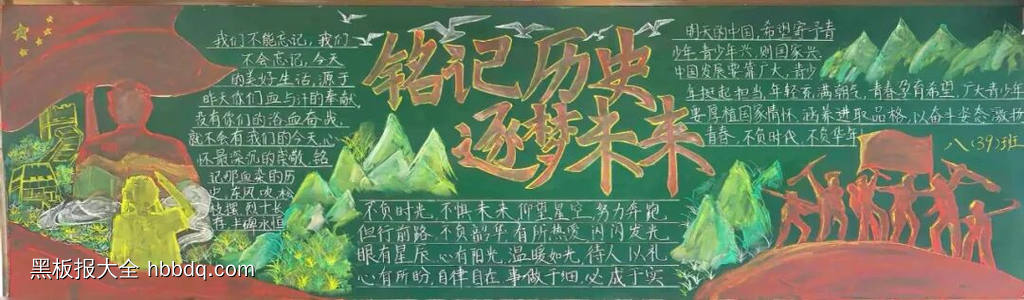 我们不能忘记,我们
不会忘记,今天
的美好生活,源于
昨天你们血与汗的奉献,
没有你们的浴血奋战,
就不会有我们的今天,心
怀最深沉的崇敬,铭
记那血染的历
史,东风吹
铭记历史
逐梦未来
不负时光,不惧未来,仰望星空,努力奔跑
但行前路,不负韶华,有所热爱,闪闪发光
眼有星辰,心有阳光,温暖如光,待人以礼
心有所盼,自律自在,事做于细,必成于实
明天的中国,希望寄予青
少年,青少年兴,则国家兴
中国发展要靠广大青少
年挺起担当,年轻充满朝气,青春孕育希望,广大青少年
要厚植国家情怀,涵养进取品格,以奋斗姿态激扬
青春,不负时代,不负华年
八(39)班
黑板报大全 hbbdq.com